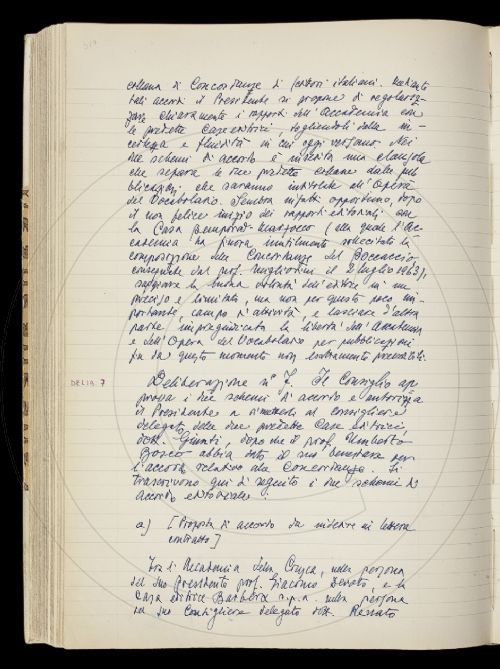 collana di Concordanze di scrittori italiani. Mediante
tali accordi il Presidente si propone di regolariz-
zare chiaramente i rapporti dell'Accademia con
le predette Case editrici, togliendoli dalla in-
certezza e fluidità in cui oggi versano. Nei
due schemi di accordo è inserita una clausola
che separa le due predette collane dalle pub
blicazioni, che saranno instituite dall'Opera
del Vocabolario. Sembra infatti opportuno, dopo
il non felice inizio dei rapporti editoriali con
la Casa Bemporad-Marzocco (alla quale l'Ac-
cademia ha finora inutilmente sollecitato la
composizione delle Concordanze del Boccaccio
consegnate dal prof. Migliorini il 2 luglio 1963),
saggiare la buona volontà dell'editore in un
preciso e limitato, ma non per questo poco im-
portante, campo d'attività, e lasciare d'altra
parte impregiudicata la libertà dell'Accademia
e dell'Opera del Vocabolario per pubblicazioni
fin da questo momento non esattamente prevedibili.
DELIB. 7
Deliberazione n° 7. Il Consiglio ap
prova i due schemi di accordo e autorizza
il Presidente a rimetterli al consigliere
delegato delle due predette Case editrici,
dott. Giunti, dopo che il prof. Umberto
Bosco abbia dato il suo benestare per
l'accordo relativo alle Concordanze. Si
trascrivono qui di seguito i due schemi di
accordo editoriale:
a) [Proposta di accordo da inserire in lettera
contratto]
Tra l'Accademia della Crusca, nella persona
del suo Presidente prof. Giacomo Devoto, e la
Casa editrice Barbèra s.p.a. nella persona
del suo Consigliere delegato dott. Renato